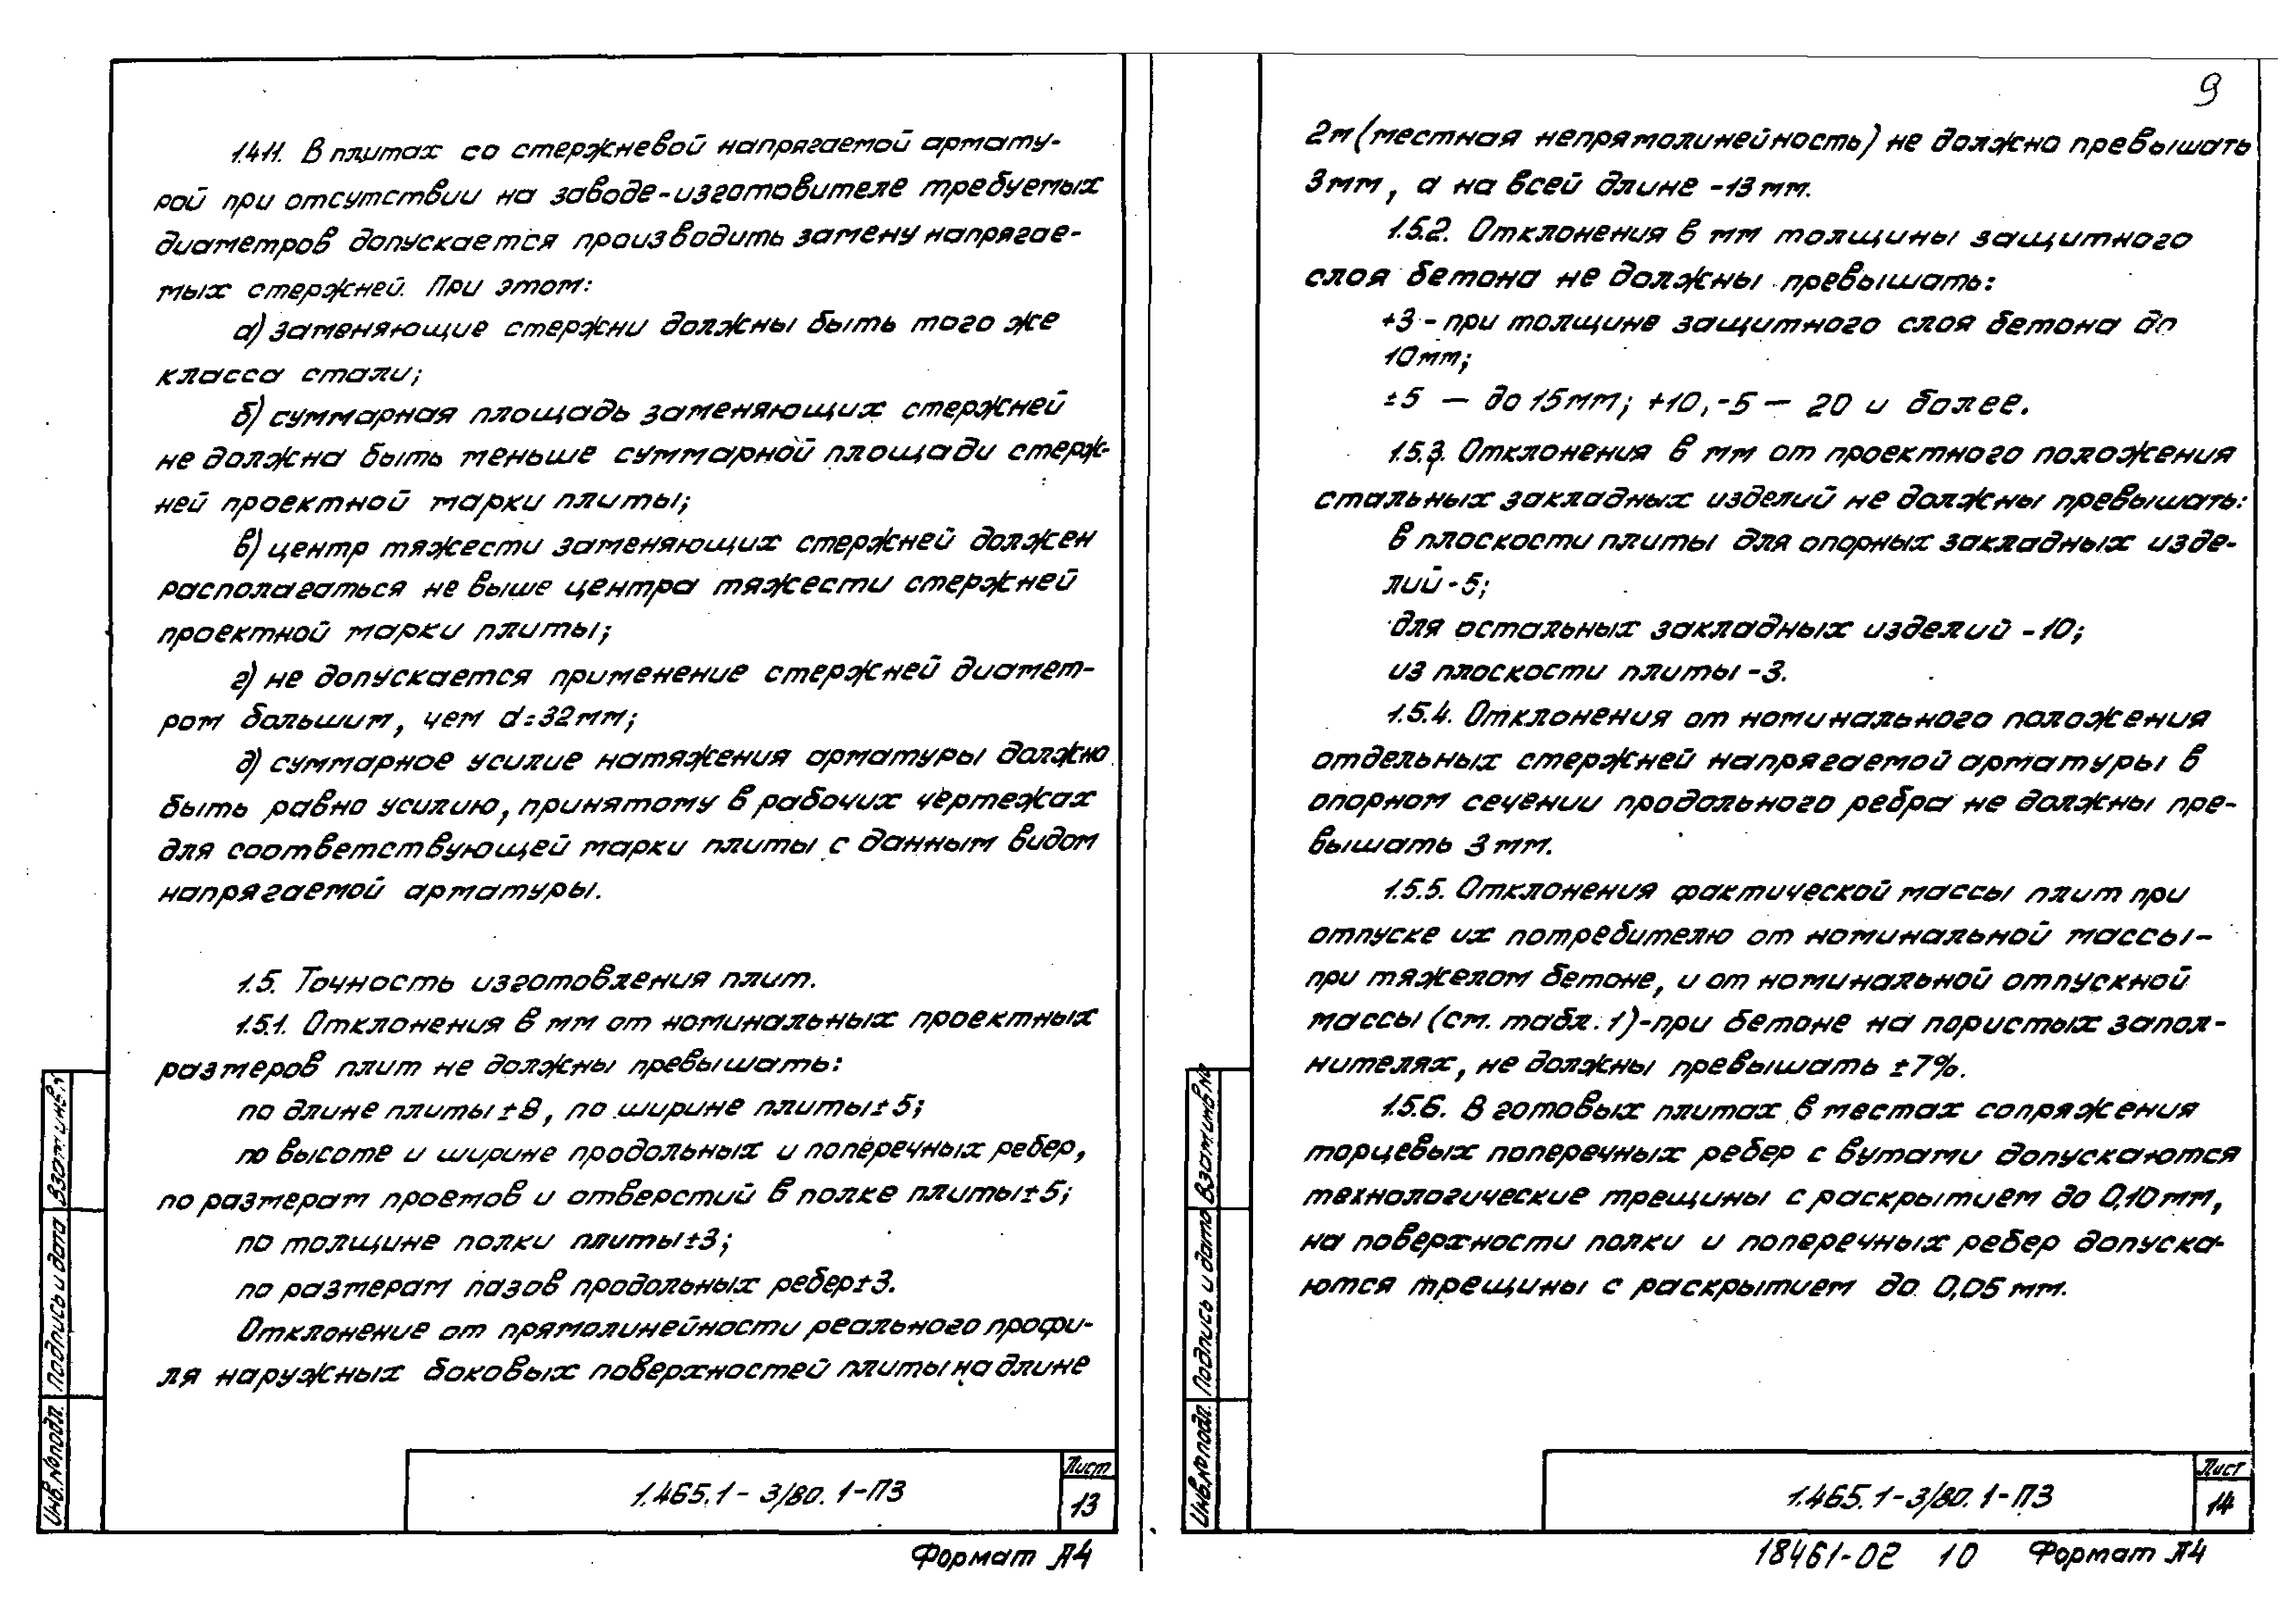 1.4.11. В плитах со стержневой напрягаемой армату-
рой при отсутствии на заводе-изготовителе требуемых
диаметров допускается производить замену напрягае-
мых стержней. При этом:
а) заменяющие стержни должны быть того же
класса стали;
б) суммарная площадь заменяющих стержней
не должна быть меньше суммарной площади стерж-
ней проектной марки плиты;
в) центр тяжести заменяющих стержней должен
располагаться не выше центра тяжести стержней
проектной марки плиты;
г) не допускается применение стержней диамет-
ром большим, чем d=32мм;
д) суммарное усилие натяжения арматуры должно
быть равно усилию, принятому в рабочих чертежах
для соответствующей марки плиты с данным видом
напрягаемой арматуры.
1.5. Точность изготовления плит.
1.5.1. Отклонения в мм от номинальных проектных
размеров плит не должны превышать:
по длине плиты ±8, по ширине плиты ±5;
по высоте и ширине продольных и поперечных ребер,
по размерам проемов и отверстий в полке плиты ±5;
по толщине полки плиты ±3;
по размерам пазов продольных ребер ±3.
Отклонение от прямолинейности реального профи-
ля наружных боковых поверхностей плиты на длине
Инв.№подл. Подпись и дата Взам.инв.№
1.465.1-3/80.1-ПЗ
Лист
13
Формат А4
9
2м (местная непрямолинейность) не должно превышать
3мм, а на всей длине -13мм.
1.5.2. Отклонения в мм толщины защитного
слоя бетона не должны превышать:
+3 - при толщине защитного слоя бетона до
10мм;
±5 — до 15мм; +10,-5 — 20 и более.
1.5.3. Отклонения в мм от проектного положения
стальных закладных изделий не должны превышать:
в плоскости плиты для опорных закладных изде-
лий -5;
для остальных закладных изделий -10;
из плоскости плиты -3.
1.5.4. Отклонения от номинального положения
отдельных стержней напрягаемой арматуры в
опорном сечении продольного ребра не должны пре-
вышать 3мм.
1.5.5. Отклонения фактической массы плит при
отпуске их потребителю от номинальной массы -
при тяжелом бетоне, и от номинальной отпускной
массы (см. табл. 1)-при бетоне на пористых запол-
нителях, не должны превышать ±7%.
1.5.6. В готовых плитах в местах сопряжения
торцевых поперечных ребер с вутами допускаются
технологические трещины с раскрытием до 0,10мм,
на поверхности полки и поперечных ребер допуска-
ются трещины с раскрытием до 0,05мм.
Инв.№подл. Подпись и дата Взам.инв.№
1.465.1-3/80.1-ПЗ
Лист
14
18461-02 10 Формат А4